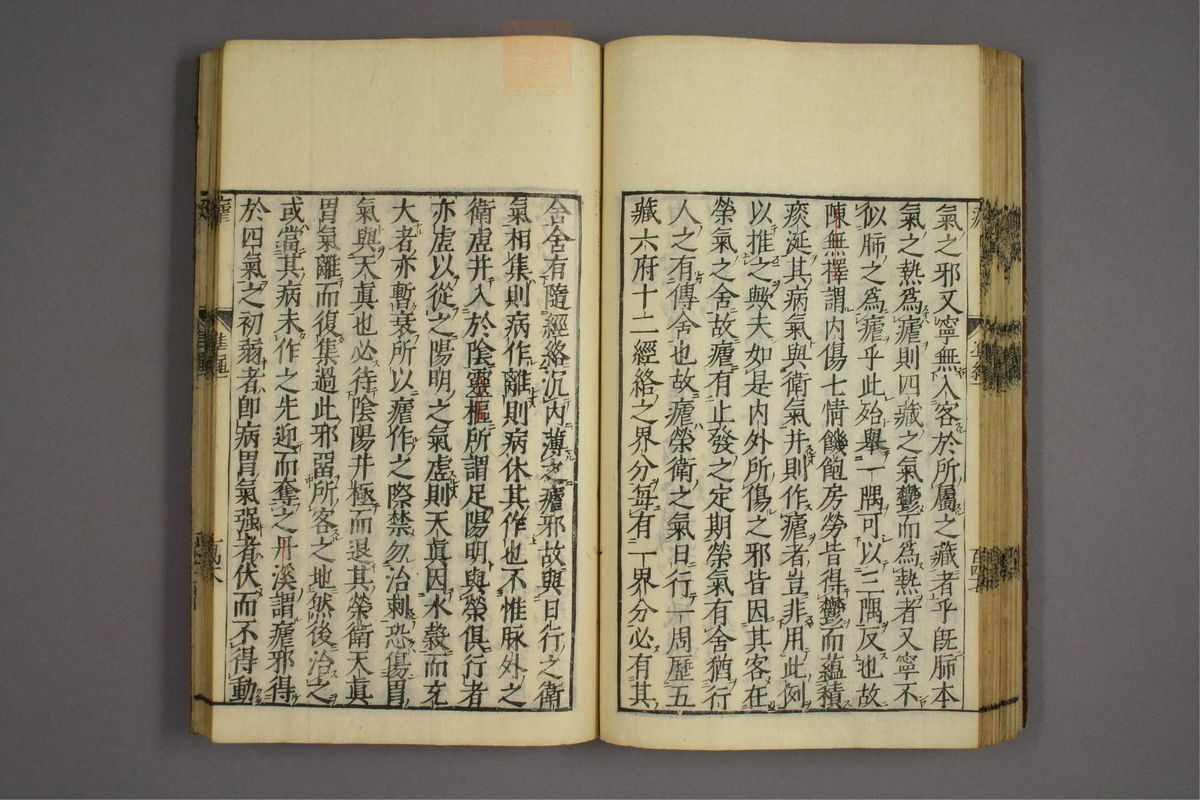 氣之邪又寧無入客於所屬之藏者乎旣肺本
氣之熱爲瘧則四藏之氣鬱而爲熱者又寧不
似肺之爲瘧乎此殆舉一隅可以三隅反也故
陳無擇謂内傷七情饑飽房勞皆得鬱而蘊積
痰涎其病氣與衛氣并則作瘧者豈非用此例
以推之歟夫如是内外所傷之邪皆因其客在
榮氣之舍故瘧有止發之定期榮氣有舍猶行
人之有傳舍也故瘧榮衛之氣日行一周歷五
藏六府十二經絡之界分每有一界分必有其
舍舍有隨經絡沉内薄之瘧邪故與日行之衛
氣相集則病作離則病休其作也不惟脉外之
衛虛并入於陰靈樞所謂足陽明與榮俱行者
亦虛以從之陽明之氣虛則天眞因水穀而充
大者亦暫衰所以瘧作之際禁勿治刺恐傷胃
氣與天眞也必待陰陽并極而退其榮衛天眞
胃氣離而復集過此邪畱所客之地然後治之
或當其病未作之先迎而奪之丹溪謂瘧邪得
於四氣之初爾者即病胃氣强者伏而不得動